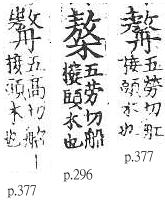 五高切船
接頭木也
p.377
五劳切船
接頭木也
p.296
五劳切舡
接頭木也
p.377